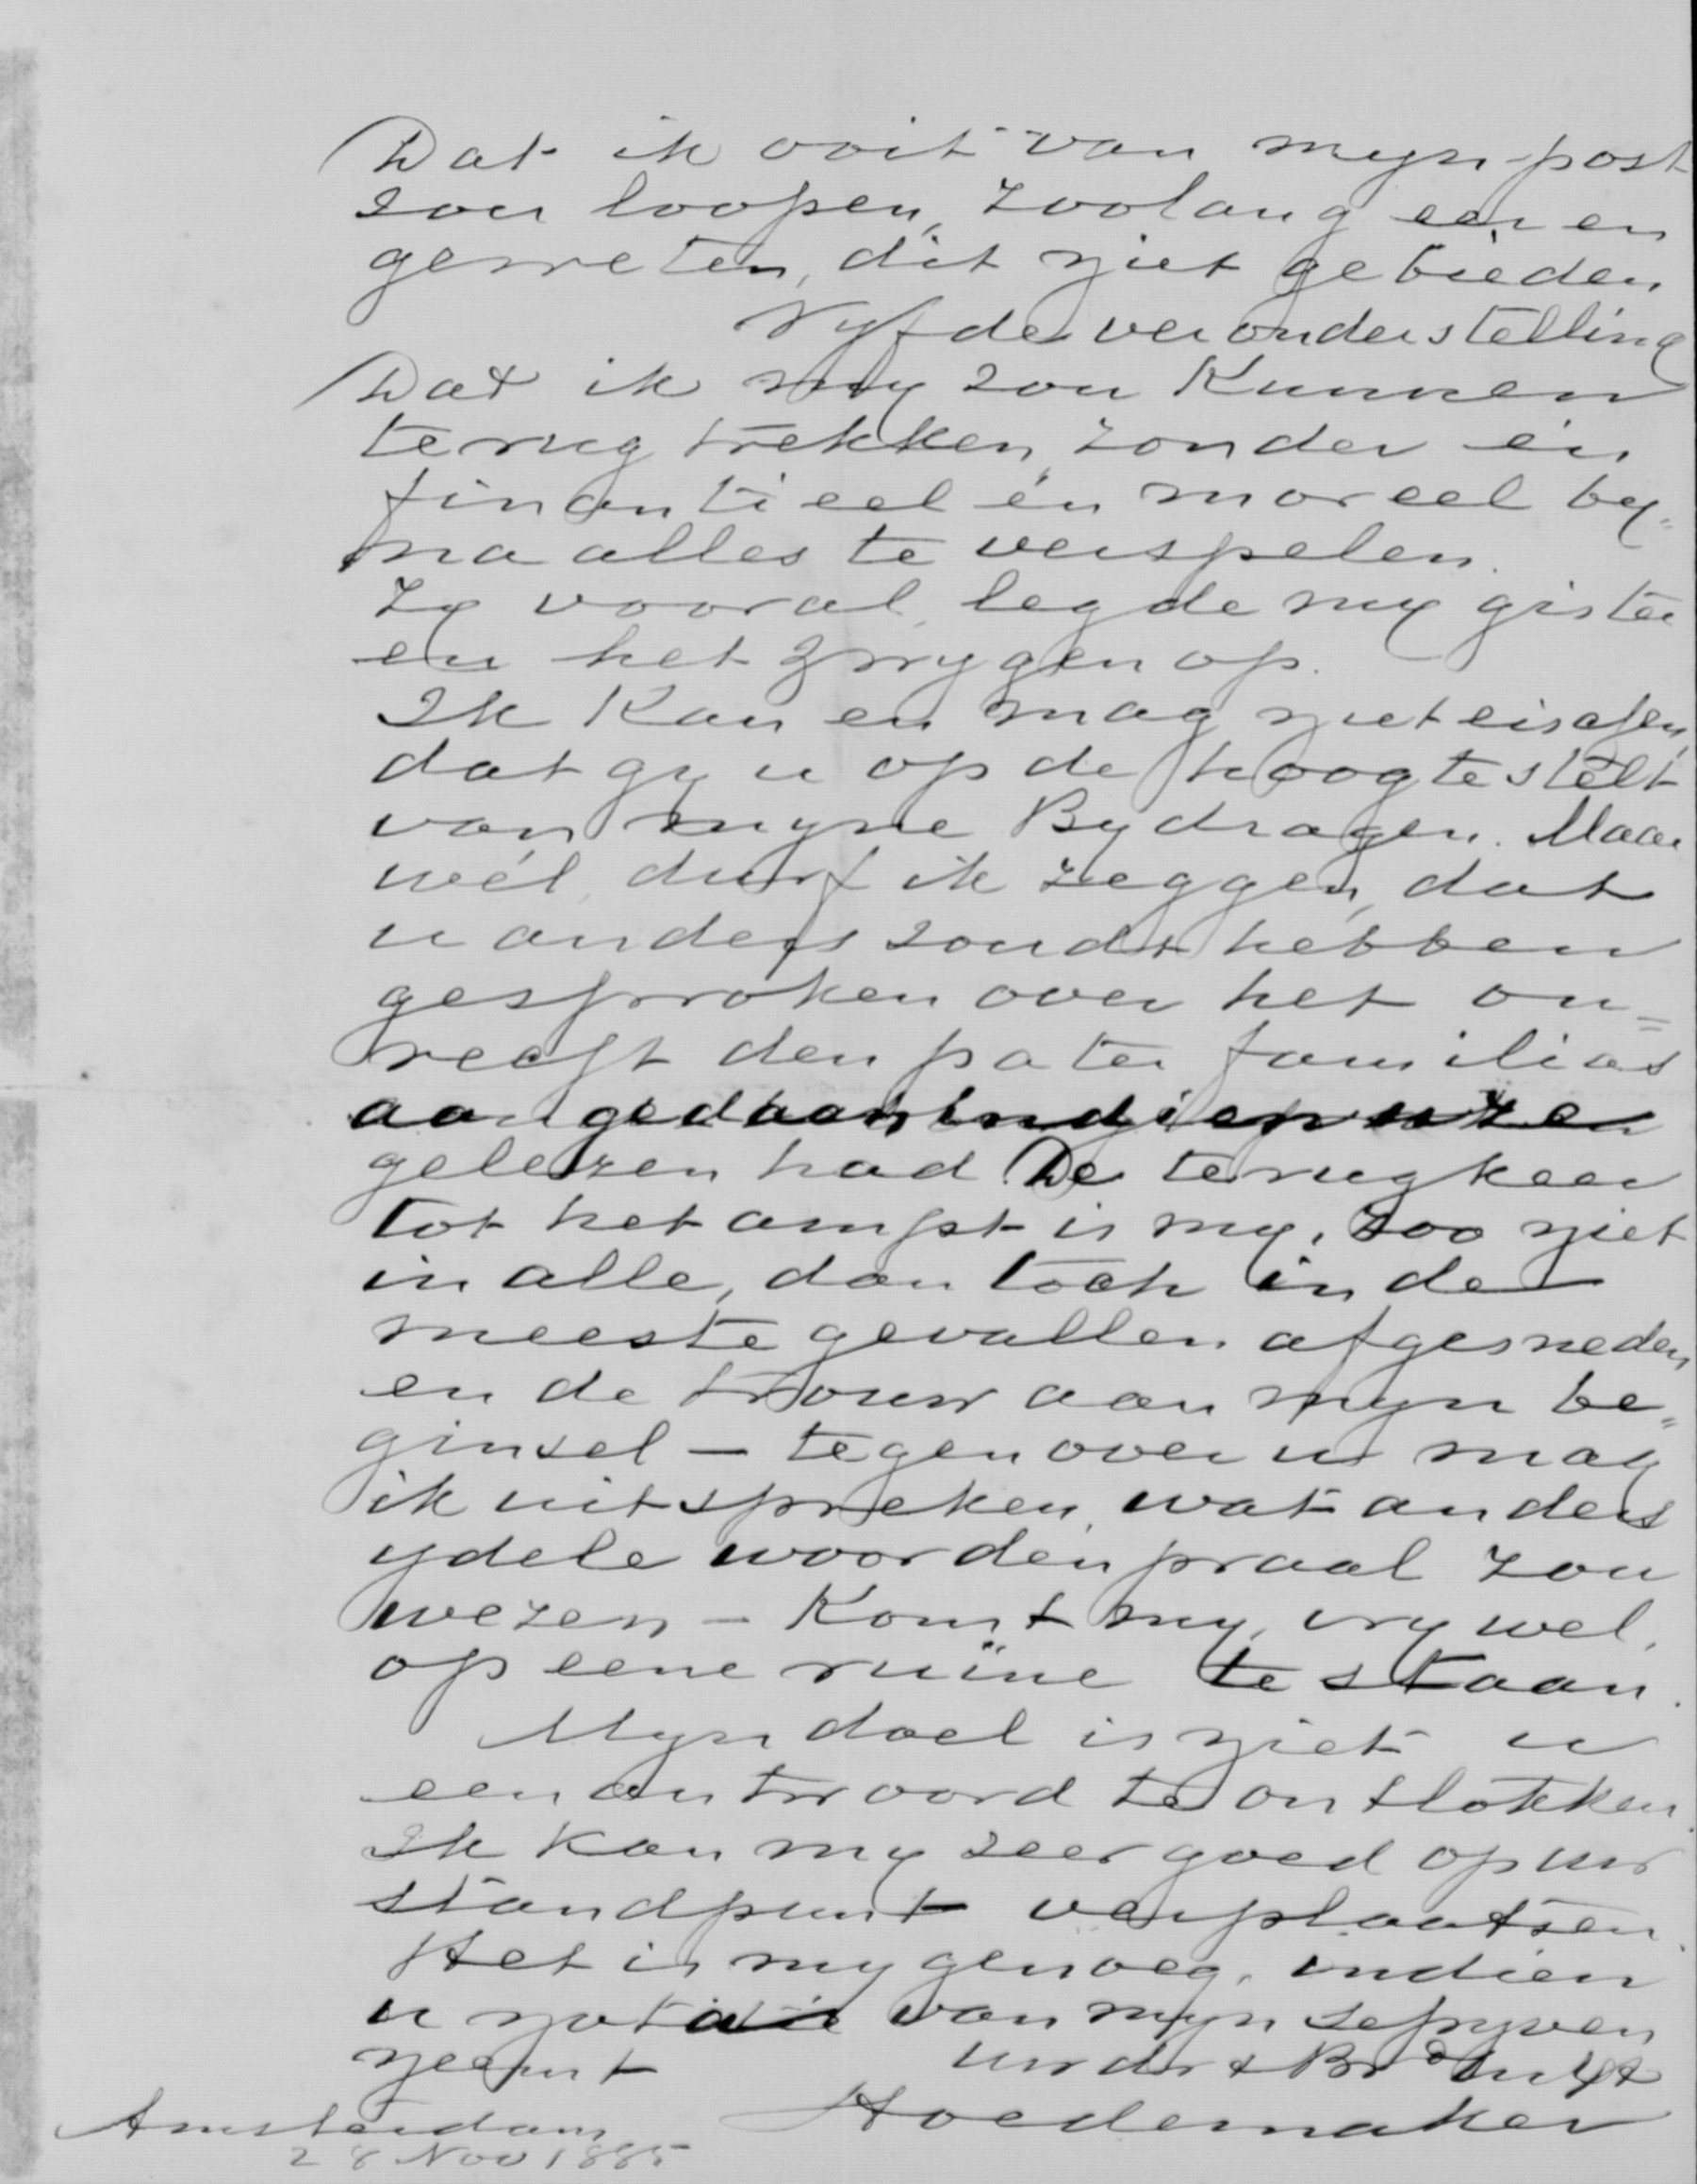 Dat ik ooit van myn post
zou loopen, zoolang eer en
geweten, dit niet gebieden
Vyfde veronderstelling
Dat ik my zou kunnen
terugtrekken, zonder én
finantieel én moreel by=
na alles te verspelen.
Zy vooral, legde my gister
en het zwygen op.
Ik kan en mag niet eischen,
dat gy u op de hoogte stelt
van myne Bydragen. Maar
wél, durf ik zeggen, dat
u anders zoudt hebben
gesproken over het on=
recht den pater familias
aangedaan indien u ze
gelezen had. De terugkeer
tot het ampt is my, zoo niet
in alle, dan toch in de
meeste gevallen afgesneden,
en de trouw aan myn be=
ginsel — tegenover u mag
ik uitspreken, wat anders
ydele woordenpraal zou
wezen — komt my, vry wel,
op eene ruïne te staan.
Myn doel is niet u
een antwoord te ontlokken.
Ik kan my zeer goed op uw
standpunt verplaatsen.
Het is my genoeg, indien
u notitie van myn schryven
neemt
Hoedemaker
Amsterdam
28 Nov 1885